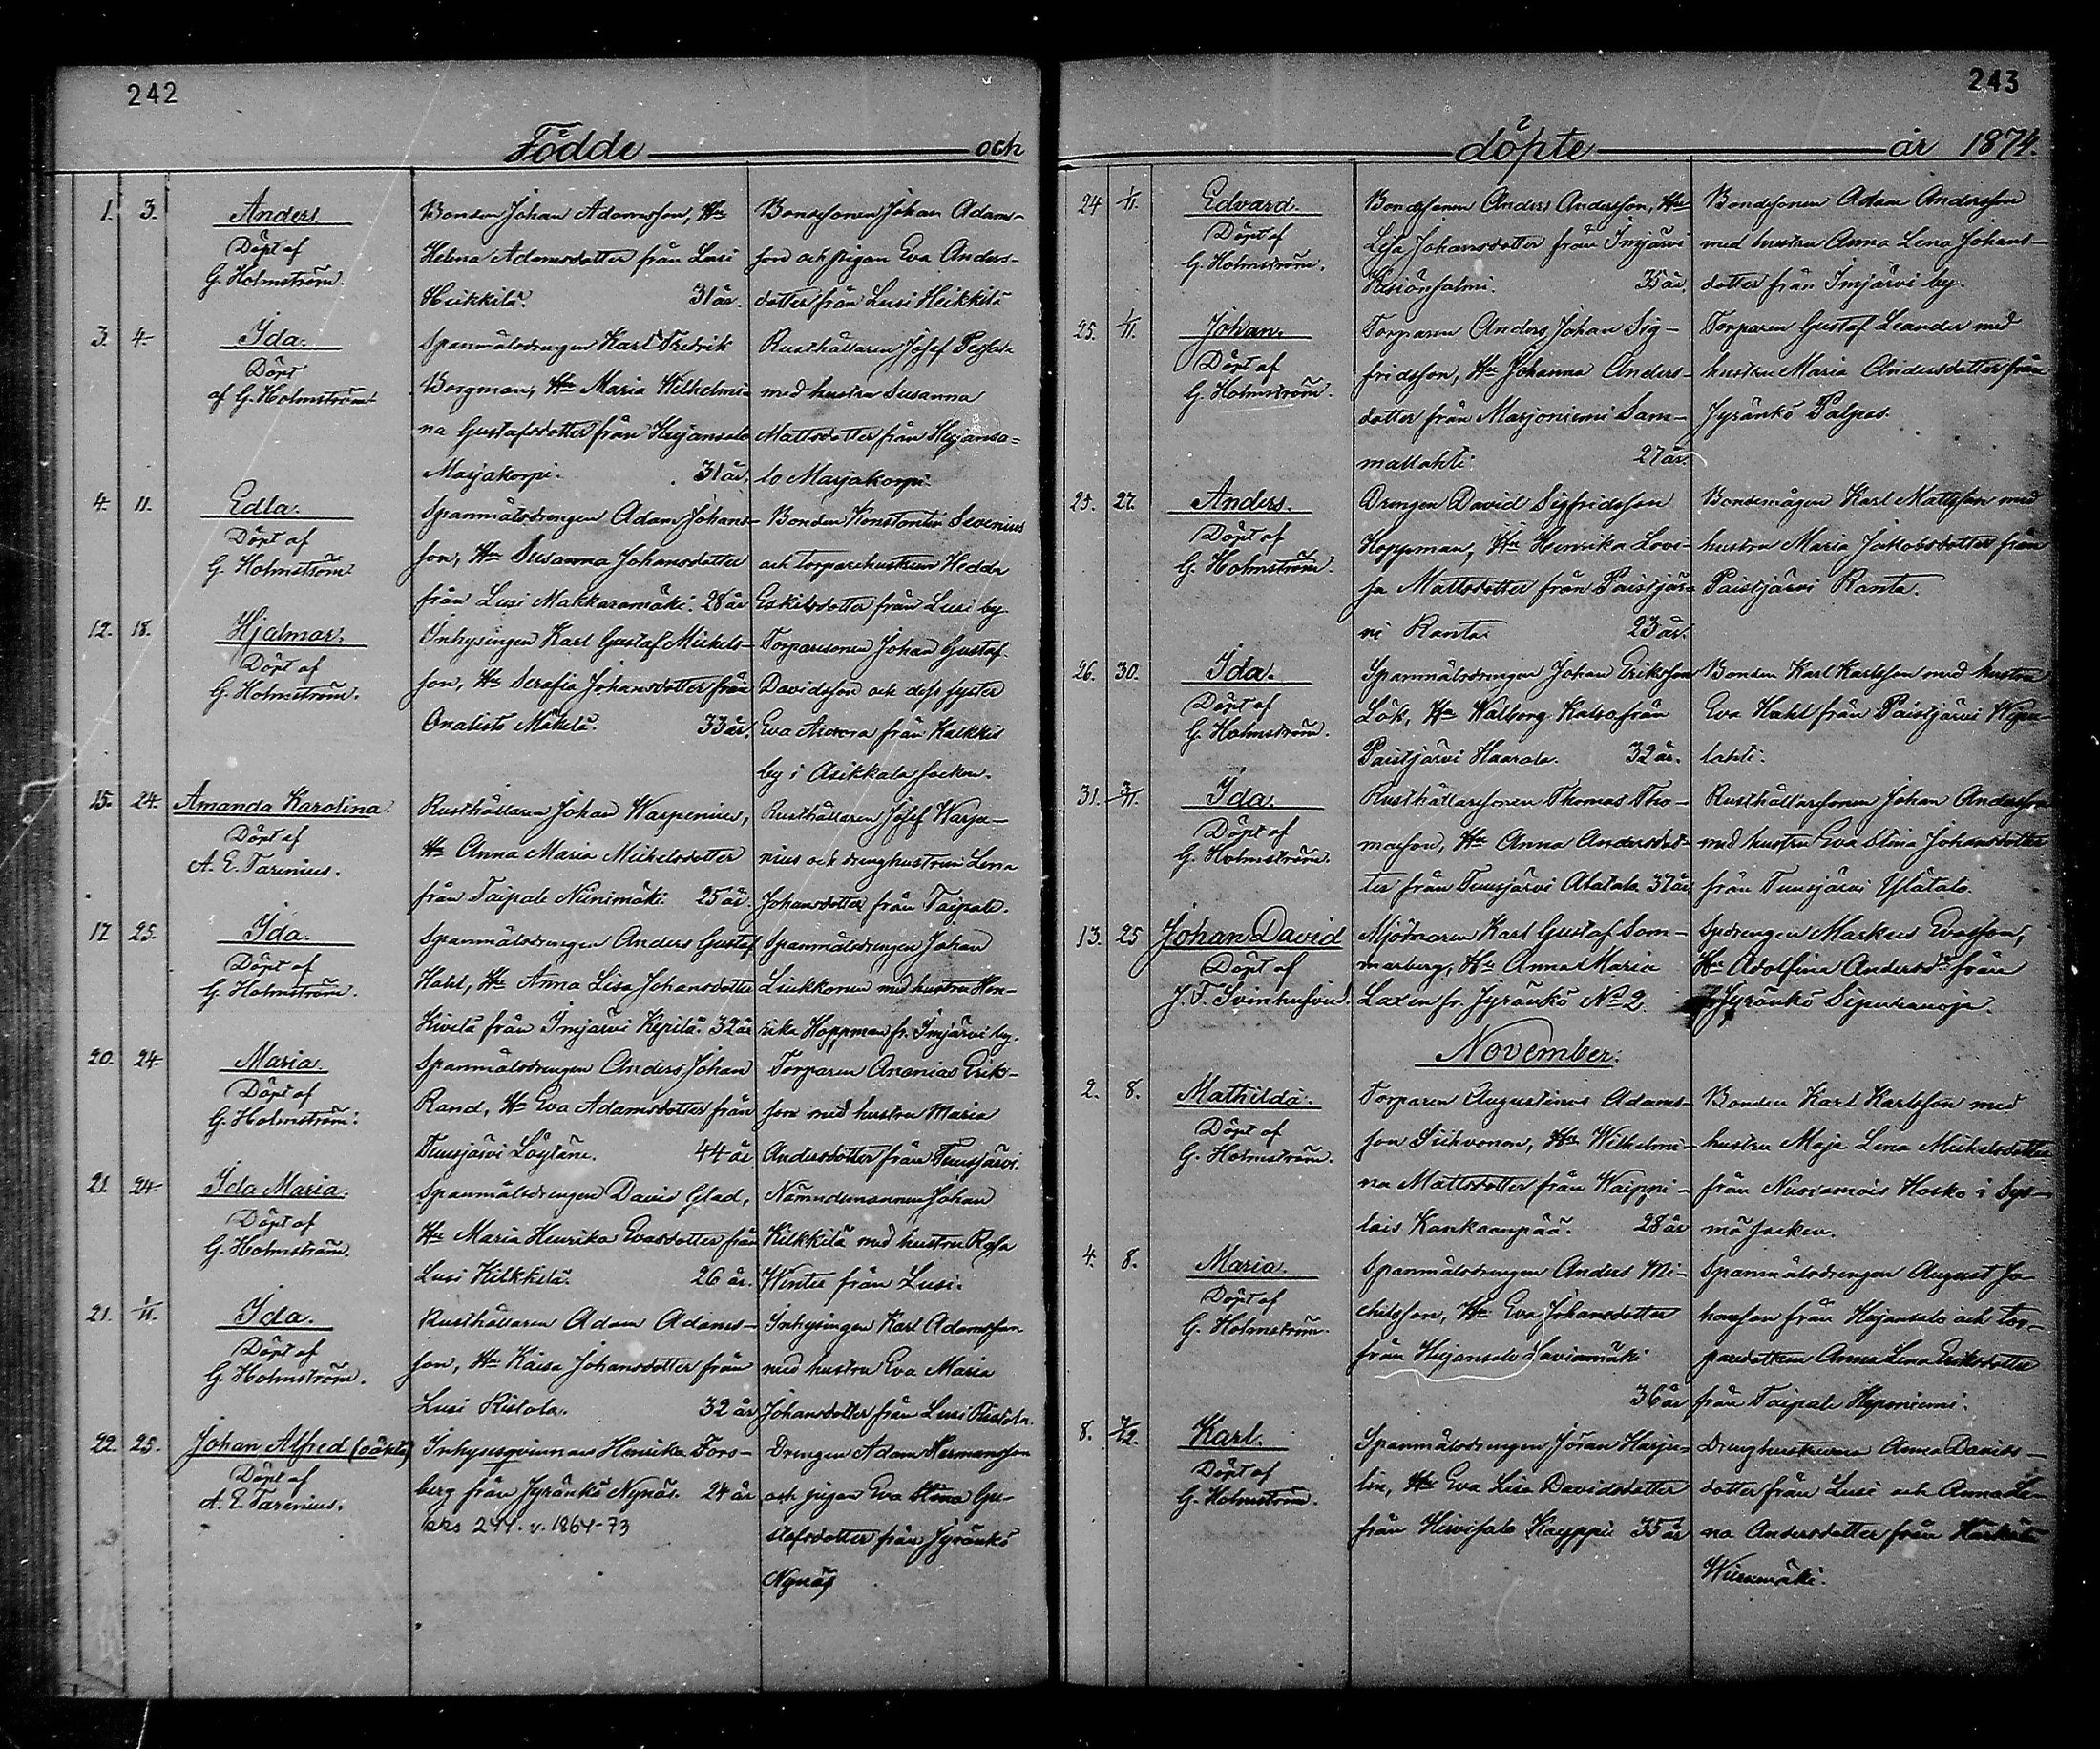 242
Födde och
1. 3. Anders. Döpt af G. Holmström.
Bonden Johan Adamsson, Hru
Helena Adamsdotter från Lusi
Heikkilä. 31 år.
Bondesonen Johan Adams-
son och pigan Eva Anders-
dotter från Lusi Heikkilä
3. 4. Ida. Döpt af G. Holmström
Spanmålsdrengen Karl Fredrik
Borgman, Hru Maria Wilhelmi-
na Gustafsdotter från Heijansalo
Marjakorpi. 31 år.
Rusthållaren Josef
med hustru Susanna
Mattsdotter från Heijansa-
lo Marjakorpi.
4. 11. Edla. Döpt af G. Holmström
Spanmålsdrengen Adam Johans-
son, Hru Susanna Johansdotter
från Lusi Makkaramäki. 28 år
Bonden Konstantin Sevenius
och torparehustrun Hedda
Eskilsdotter från Lusi by.
12. 18. Hjalmar. Döpt af G. Holmström.
Inhysingen Karl Gustaf Mickels-
son, Hru Serafia Johansdotter från
Onalists Mäkelä. 33 år.
Torparesonen Johan Gustaf
Davidsson och dess syster
Eva Aurora från Kalkkis
by i Asikkala socken.
15. 24. Amanda Karolina. Döpt af A. E. Tarenius.
Rusthållaren Johan Warpenius,
Hru Anna Maria Michelsdotter
från Taipale Niinimäki. 25 år.
Rusthållaren Josef Warpe-
nius och drenghustrun Lena
Johansdotter från Taipale.
17 25. Ida. Döpt af G. Holmström.
Spanmålsdrengen Anders Gustaf
Hahl, Hru Anna Lisa Johansdotter
Hivelä från Imjärvi Kepilä. 32 år
Spanmålsdrengen Johan
Liukkonen med hustru Hen-
rika Hoppman fr. Imjärvi by.
20. 24. Maria. Döpt af G. Holmström.
Spanmålsdrengen Anders Johan
Rand, Hru Eva Adamsdotter från
Tuusjärvi Löytäne. 44 år
Torparen Ananias Eriks-
son med hustru Maria
Andersdotter från Tuusjärvi.
21 24 Ida Maria. Döpt af G. Holmström.
Spanmålsdrengen David Glad,
Hru Maria Henrika Evasdotter från
Lusi Kilkkilä. 26 år.
Nämndemannen Johan
Kilkkilä med hustru Rosa
Winter från Lusi.
21. 1/11. Ida. Döpt af G. Holmström.
Rusthållaren Adam Adams-
son, Hru Kaisa Johansdotter från
Lusi Ristola. 32 år
Inhysingen Karl Adamsson
med hustru Eva Maria
Johansdotter från Lusi Ristola.
22. 25. Johan Alfred (oäkta) Döpt af A. E. Tarenius.
Inhysesqvinnans Henrika Fors-
berg från Jyränkö Nynäs. 24 år
bks 244. v. 1864-73
Drengen Adam Hermansson
och pigan Eva Stina Gu-
stafsdotter från Jyränkö
Nynäs
243
döpte år 1874.
24 1/11. Edvard. Döpt af G. Holmström.
Bondesonen Anders Andersson, Hru
Lisa Johansdotter från Imjärvi
35 år.
Bondesonen Adam Andersson
med hustru Anna Lena Johans-
dotter från Imjärvi by.
25. 1/11. Johan. Döpt af G. Holmström.
Torparen Anders Johan Sig-
fridsson, Hru Johanna Anders-
dotter från Marjoniemi Sam-
mallahti. 27 år.
Torparen Gustaf Leander med
hustru Maria Andersdotter från
Jyränkö Palpas.
25. 27. Anders. Döpt af G. Holmström.
Drengen David Sigfridsson
Hoppman, Hru Henrika Lovi-
sa Mattsdotter från Paistjär-
vi Ranta. 23 år.
Bondemågen Karl Mattsson med
hustru Maria Jakobsdotter från
Paistjärvi Ranta.
26. 30. Ida. Döpt af G. Holmström.
Spanmålsdrengen Johan Eriksson
Lök, Hru Walborg Katso från
Paistjärvi Haarala. 32 år.
Bonden Karl Karlsson med hustru
Eva Hahl från Paistjärvi
lahti.
31. 3/11. Ida. Döpt af G. Holmström.
Rusthållaresonen Thomas Tho-
masson, Hru Anna Andersdot-
ter från Tuusjärvi Alatalo. 37 år
Rusthållaresonen Johan Andersson
med hustru Eva Stina Johansdotter
från Tuusjärvi Ylätalo.
13. 25 Johan David Döpt af J. F. Svinhufvud.
Mjölnaren Karl Gustaf Som-
marberg, Hu Anna Maria
Laxen fr. Jyränkö No 2.
Spdrengen Markus Evasson,
Hu Adolfina Andersdr från
Jyränkö Sepukanoja.
November.
2. 8. Mathilda. Döpt af G. Holmström.
Torparen Augustinus Adams-
son Siihvonen, Hru Wilhelmi-
na Mattsdotter från Waippi-
lais Kankaanpää. 28 år
Bonden Karl Karlsson med
hustru Maja Lena Michelsdotter
från Nuoramois Hosko i Sys-
mä socken.
4. 8. Maria. Döpt af G. Holmström.
Spanmålsdrengen Anders Mi-
chelsson, Hru Eva Johansdotter
från Heijansalo Saviomäki
36 år
Spanmålsdrengen August Jo-
hansson från Heijansalo och tor-
paredottern Anna Lena Eriksdotter
från Taipale Heponiemi.
8. 7/12. Karl. Döpt af G. Holmström.
Spanmålsdrengen Jöran Harju-
lin, Hru Eva Lisa Davidsdotter
från Hirvisalo Kauppi 35 år
Drenghustrurna Anna Davids-
dotter från Lusi och Anna Le-
na Andersdotter från